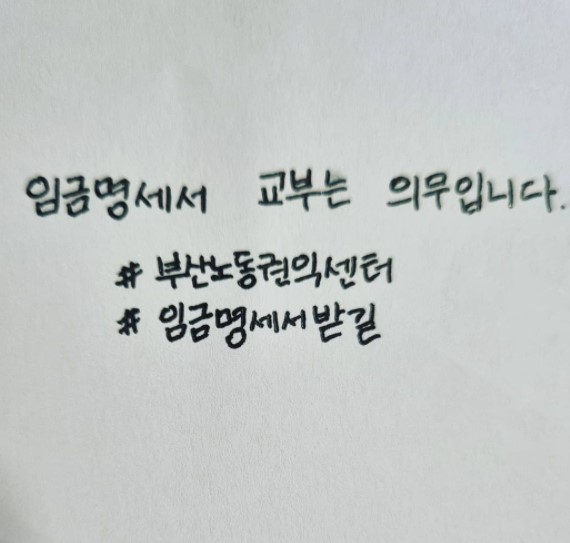 임금명세서 교부는 의무입니다.
# 부산노동권익센터
# 임금명세서받길